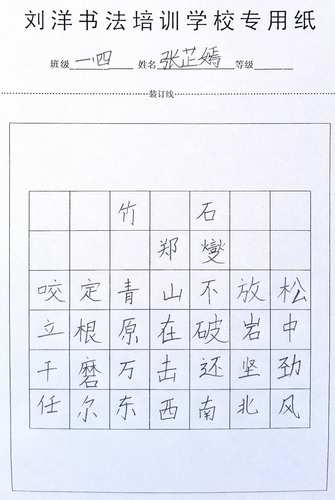 刘洋书法培训学校专用纸
班级 一四 姓名 张芷嫣 等级
装订线
竹石
郑燮
咬定青山不放松
立根原在破岩中
千磨万击还坚劲
任尔东西南北风